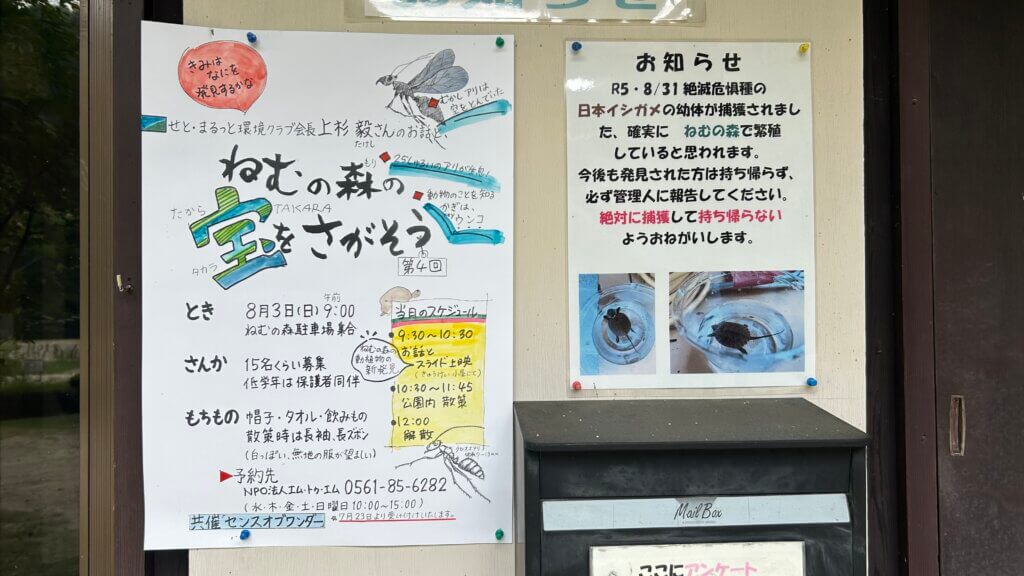 お知らせ
きみは
なにを
発見するかな
むかしアリは
空をとんでいた
せと・まるっと環境クラブ会長 上杉 毅さんのお話と、
たけし
もり
ねむの森の
25しゅるいのアリが生息!
動物のことを知る
かぎは、
ウンコ
たから
TAKARA
タカラ
宝をさがそう
第4回
とき
午前
8月3日(日) 9:00
ねむの森駐車場集合
さんか
15名くらい募集
低学年は保護者同伴
もちもの
帽子・タオル・飲みもの
散策時は長袖、長ズボン
(白っぽい、無地の服が望ましい)
ねむの森の
動植物の
新発見
当日のスケジュール
9:30~10:30
お話と
スライド上映
(きゅうけい小屋にて)
10:30~11:45
公園内 散策
12:00
解散
予約先
NPO法人エム・トゥ・エム 0561-85-6282
(水・木・金・土・日曜日 10:00~15:00)
共催 センスオブワンダー
※7月23日より受け付けいたします。
お知らせ
R5・8/31 絶滅危惧種の
日本イシガメの幼体が捕獲されまし
た、確実に ねむの森で繁殖
していると思われます。
今後も発見された方は持ち帰らず、
必ず管理人に報告してください。
絶対に捕獲して持ち帰らない
ようおねがいします。
Mail Box
ここにアンケート